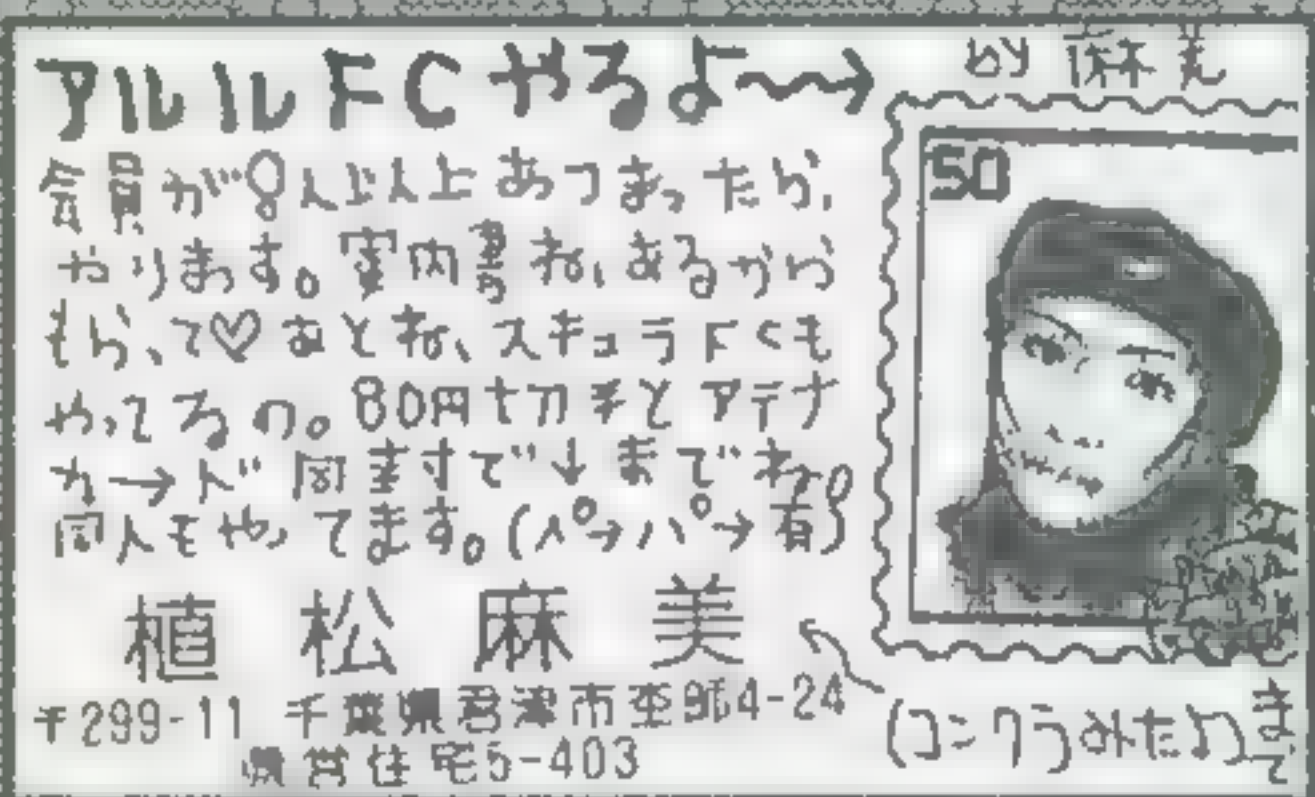 アルルFCやるよ〜→
by 麻美
会員が8人以上あつまったら、
50
やります。案内書ね、あるから
もらって♡あとね、スキュラFCも
やってるの。80円切手とアテナ
カ→ド同ますで↓までね。
同人もやってます。(ペ→パ→有)
植松麻美
〒299-11 千葉県君津市 4-24
県営住宅5-403
(コンクラみたよ)
まで